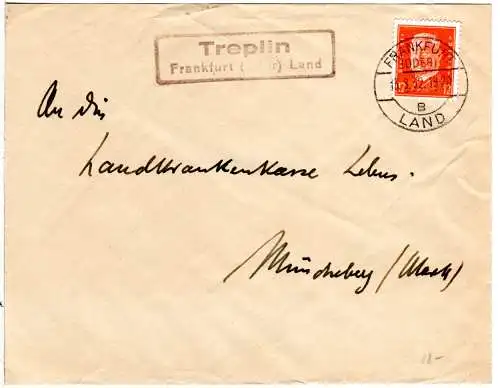 Treplin
Frankfurt (Oder) Land
FRANKFURT
(ODER)
32
B
LAND
12
An die
Landkrankenkasse Lebus.
Müncheberg (Mark)
18-